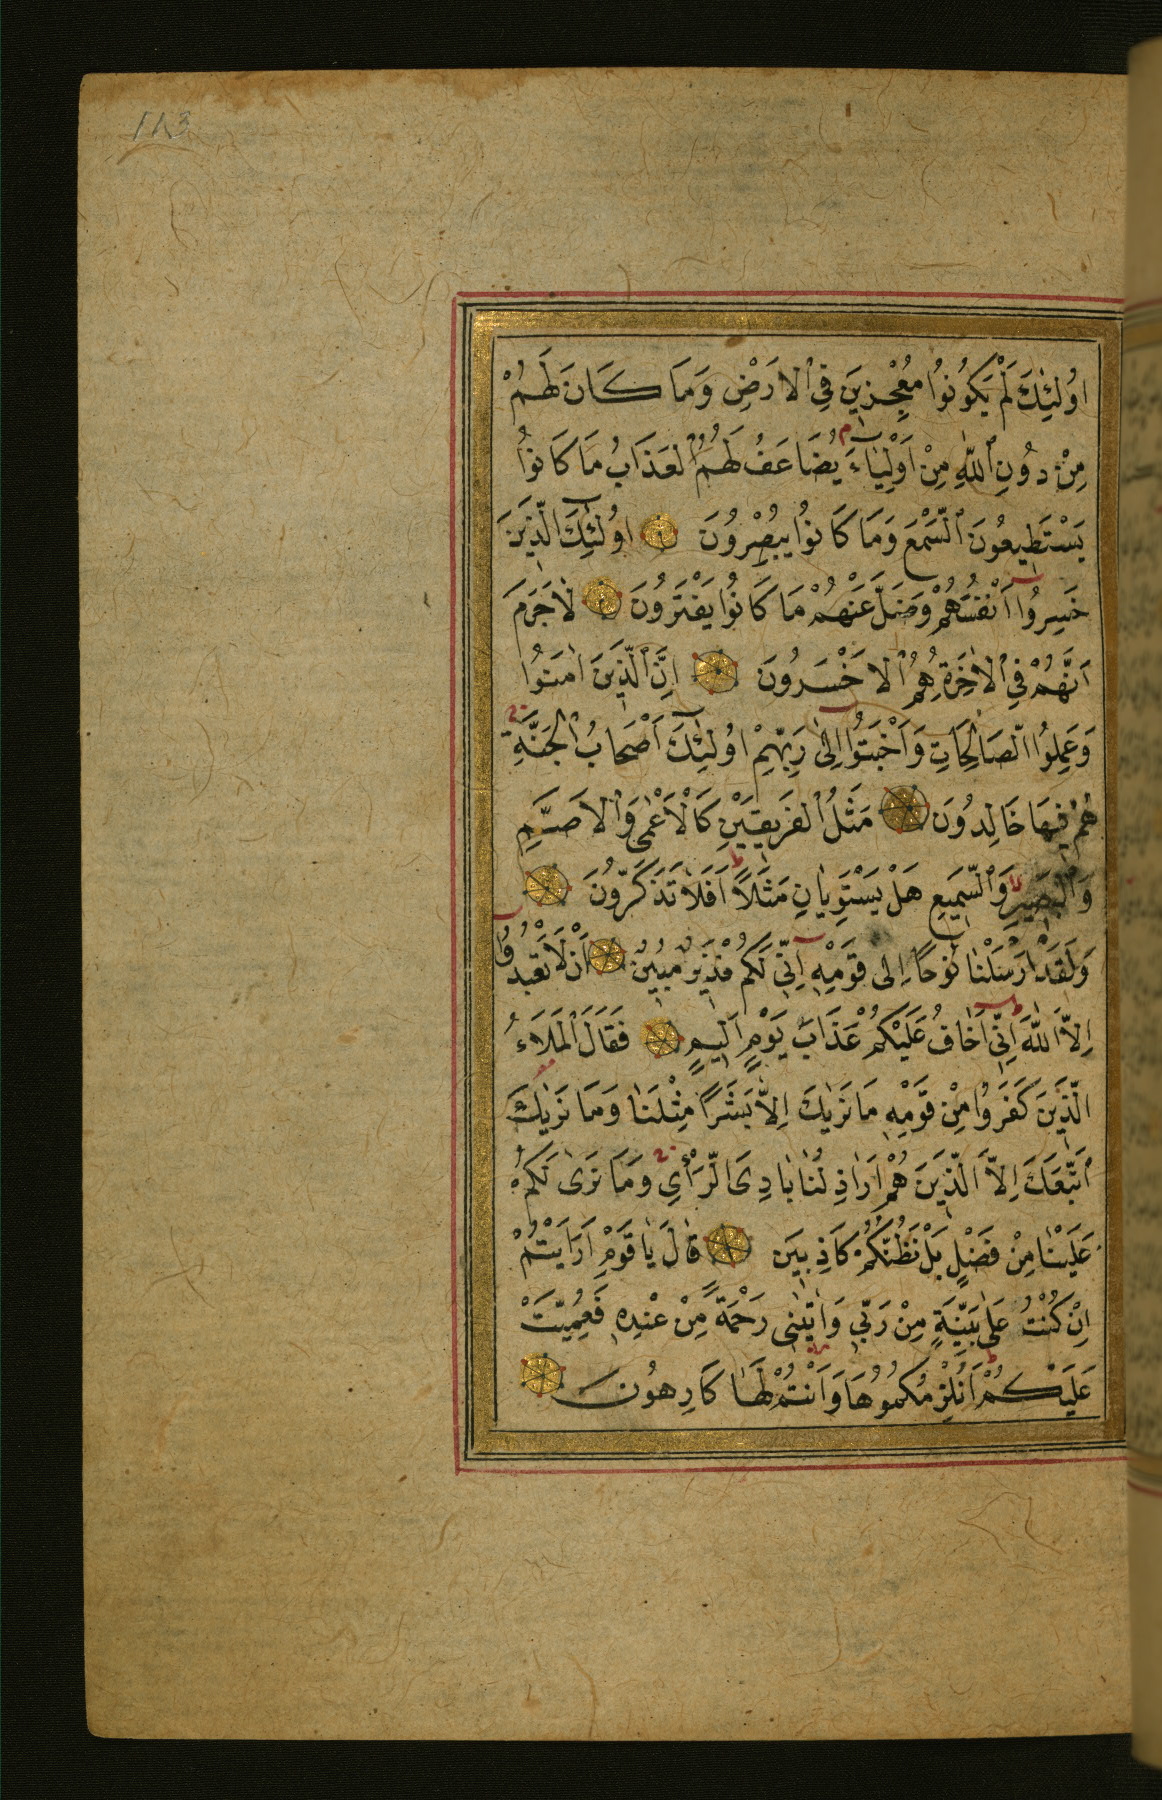 ١٨٣
اُولٰئِكَ لَمْ يَكُونُوا مُعْجِزِينَ فِي ٱلْاَرْضِ وَمَا كَانَ لَهُمْ
مِنْ دُونِ ٱللّٰهِ مِنْ اَوْلِيَاءَ يُضَاعَفُ لَهُمُ ٱلْعَذَابُ مَا كَانُوا
يَسْتَطِيعُونَ ٱلسَّمْعَ وَمَا كَانُوا يُبْصِرُونَ اُولٰئِكَ الَّذِينَ
خَسِرُوا اَنْفُسَهُمْ وَضَلَّ عَنْهُمْ مَا كَانُوا يَفْتَرُونَ لَاجَرَمَ
اَنَّهُمْ فِي ٱلْاٰخِرَةِ هُمُ ٱلْاَخْسَرُونَ اِنَّ ٱلَّذِينَ اٰمَنُوا
وَعَمِلُوا الصَّالِحَاتِ وَاَخْبَتُوا اِلٰى رَبِّهِمْ اُولٰئِكَ اَصْحَابُ ٱلْجَنَّةِ
هُمْ فِيهَا خَالِدُونَ مَثَلُ ٱلْفَرِيقَيْنِ كَالْاَعْمٰى وَٱلْاَصَمِّ
وَٱلْبَصِيرِ وَٱلسَّمِيعِ هَلْ يَسْتَوِيَانِ مَثَلًا اَفَلَا تَذَكَّرُونَ
وَلَقَدْ اَرْسَلْنَا نُوحًا اِلٰى قَوْمِهِ اِنِّي لَكُمْ نَذِيرٌ مُبِينٌ اَنْ لَا تَعْبُدُوا
اِلَّا اللّٰهَ اِنِّي اَخَافُ عَلَيْكُمْ عَذَابَ يَوْمٍ اَلِيمٍ فَقَالَ ٱلْمَلَاءُ
الَّذِينَ كَفَرُوا مِنْ قَوْمِهِ مَا نَرٰيكَ اِلَّا بَشَرًا مِثْلَنَا وَمَا نَرٰيكَ
ٱتَّبَعَكَ اِلَّا الَّذِينَ هُمْ اَرَاذِلُنَا بَادِيَ الرَّأْيِ وَمَا نَرٰى لَكُمْ
عَلَيْنَا مِنْ فَضْلٍ بَلْ نَظُنُّكُمْ كَاذِبِينَ قَالَ يَا قَوْمِ اَرَاَيْتُمْ
اِنْ كُنْتُ عَلٰى بَيِّنَةٍ مِنْ رَبِّي وَاٰتٰينِي رَحْمَةً مِنْ عِنْدِهِ فَعُمِّيَتْ
عَلَيْكُمْ اَنُلْزِمُكُمُوهَا وَاَنْتُمْ لَهَا كَارِهُونَ